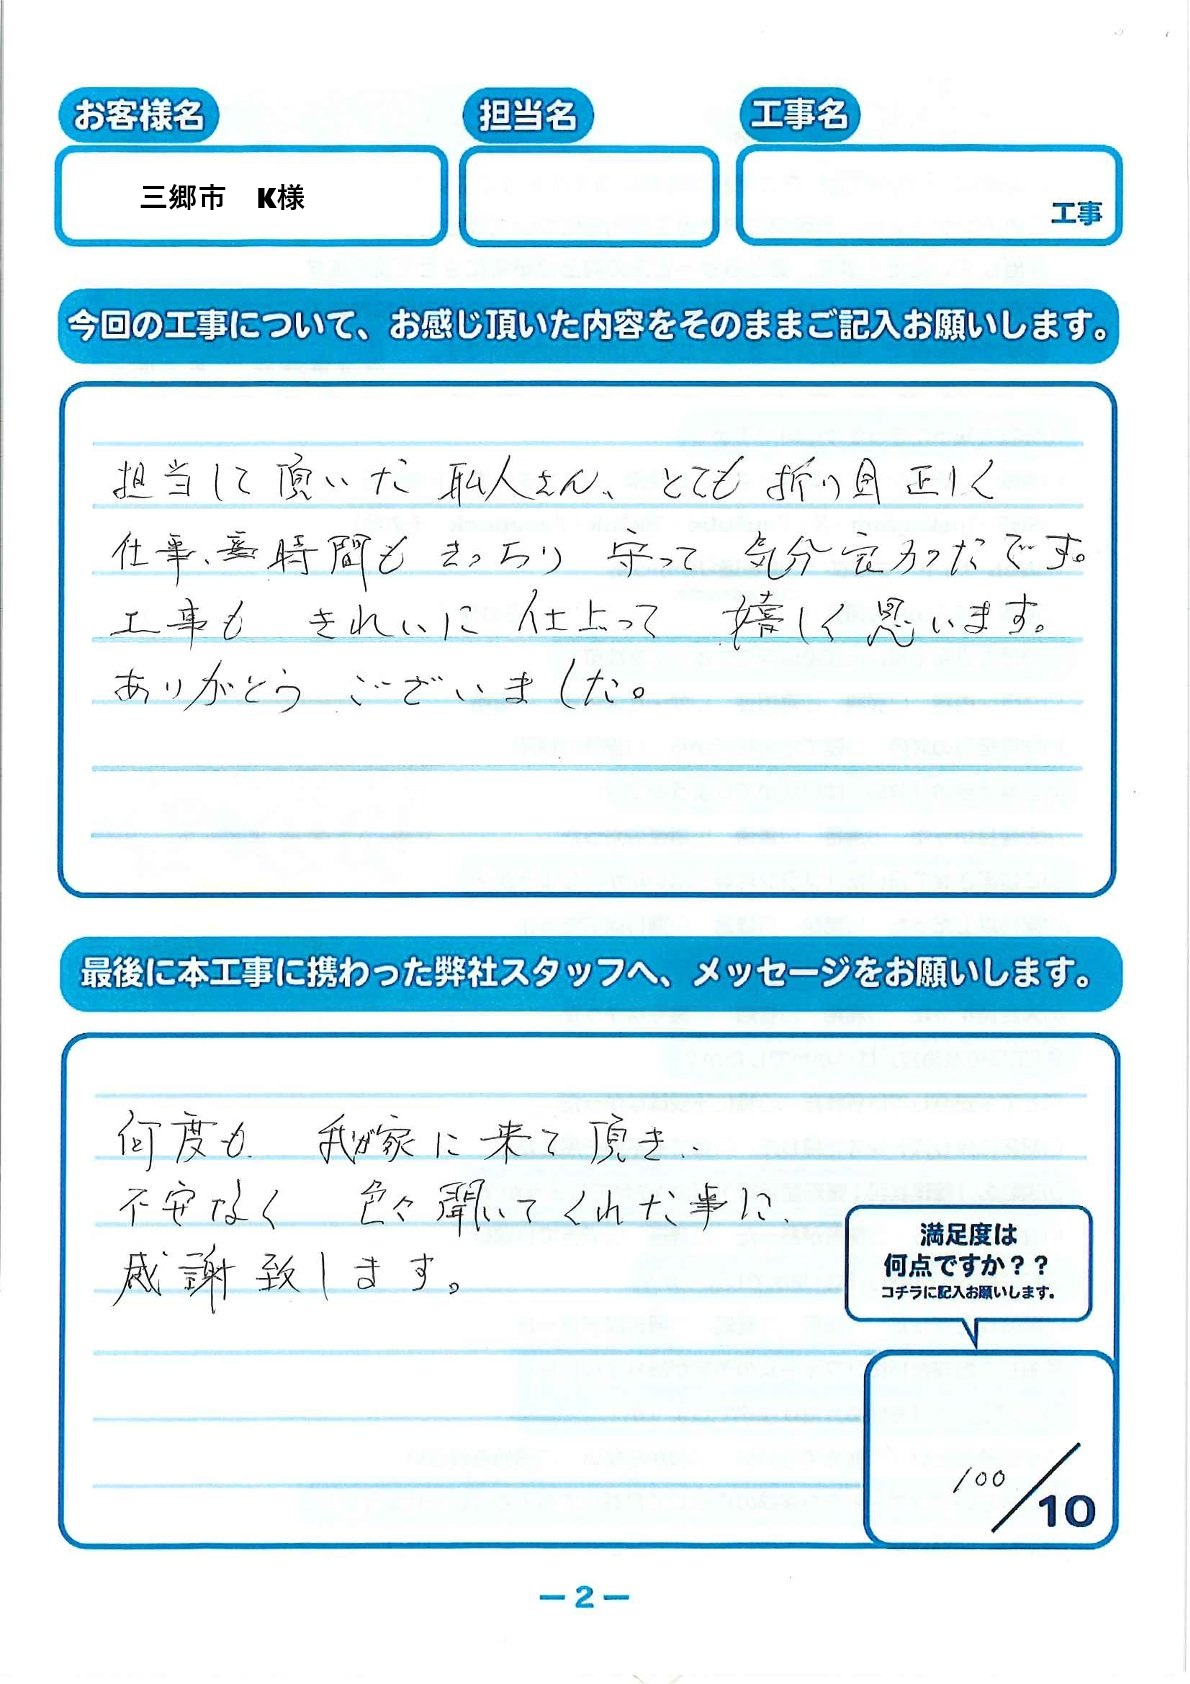 お客様名
担当名
工事名
三郷市 K様
工事
今回の工事について、お感じ頂いた内容をそのままご記入お願いします。
担当して頂いた 職人さん、とても 折り目 正しく
仕事、時間も きっちり 守って 気分良かったです。
工事も きれいに 仕上って 嬉しく思います。
ありがとう ございました。
最後に本工事に携わった弊社スタッフへ、メッセージをお願いします。
何度も 我が家に来て頂き、
不安なく 色々聞いてくれた事に、
感謝致します。
満足度は
何点ですか？？
コチラに記入お願いします。
100
／10
― 2 ―